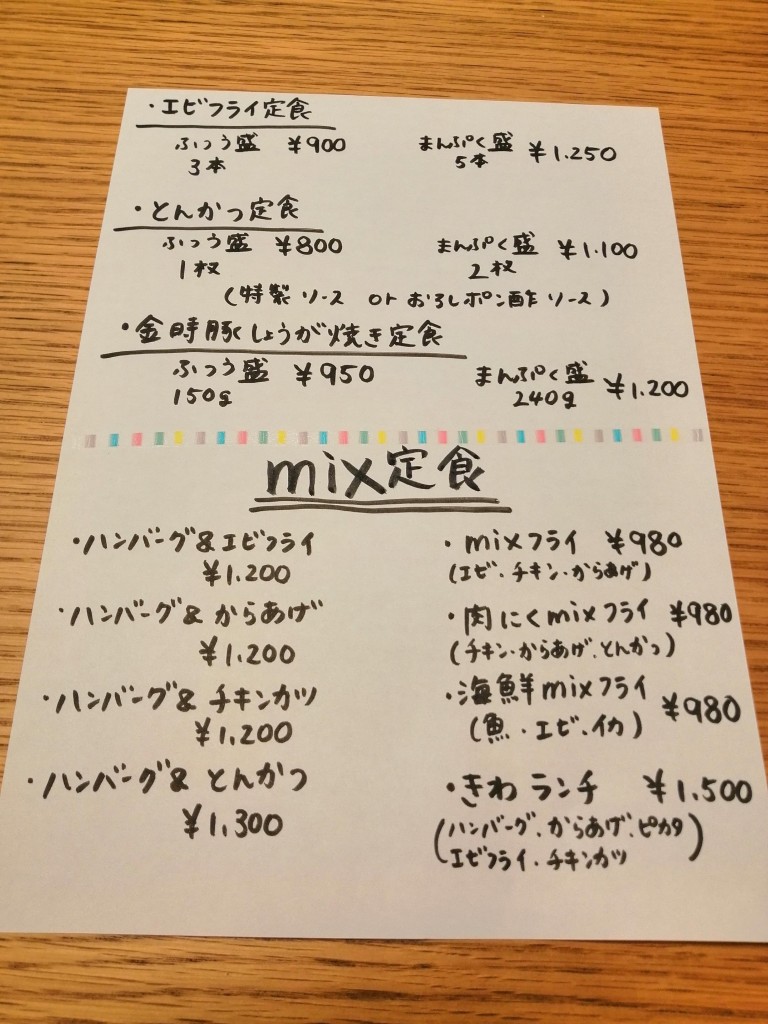 ・エビフライ定食
ふつう盛 ¥900 まんぷく盛 ¥1.250
3本 5本
・とんかつ定食
ふつう盛 ¥800 まんぷく盛 ¥1.100
1枚 2枚
(特製ソース or おろしポン酢ソース)
・金時豚しょうが焼き定食
ふつう盛 ¥950 まんぷく盛 ¥1.200
150g 240g
mix定食
・ハンバーグ&エビフライ
¥1.200
・ハンバーグ&からあげ
¥1.200
・ハンバーグ&チキンカツ
¥1.200
・ハンバーグ&とんかつ
¥1.300
・mixフライ ¥980
(エビ・チキン・からあげ)
・肉にくmixフライ ¥980
(チキン・からあげ、とんかつ)
・海鮮mixフライ ¥980
(魚・エビ、イカ)
・きわランチ ¥1.500
(ハンバーグ、からあげ、ピカタ
エビフライ・チキンカツ)